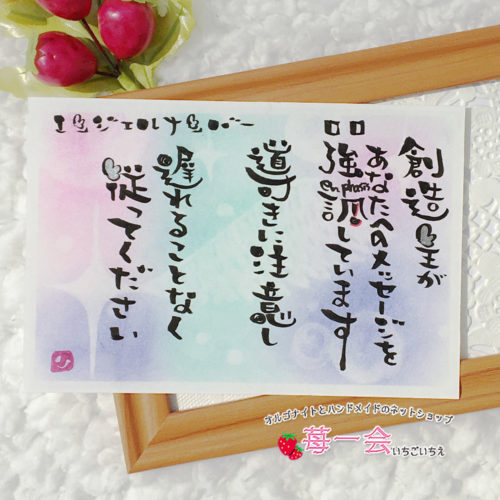 エンジェルナンバー
創造主が
あなたへのメッセージを
強調しています
導きに注意し
遅れることなく
従ってください
オルゴナイトとハンドメイドのネットショップ
苺一会 いちごいちえ